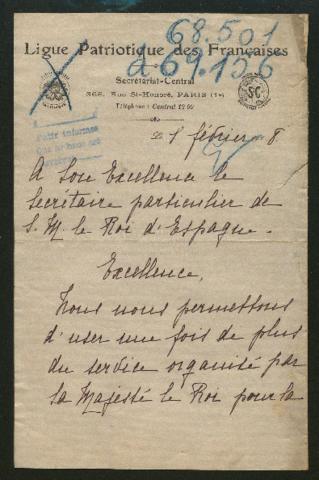 68.501
a 69.156
Ligue Patriotique des Françaises
Secrétariat-Central
368, Rue St-Honoré, PARIS (1er)
Téléphone : Central
février 8
A Son Excellence le
Secrétaire particulier de
S. M. le Roi d'Espagne.
Excellence,
Nous nous permettons
d'user une fois de plus
du service organisé par
Sa Majesté le Roi pour la